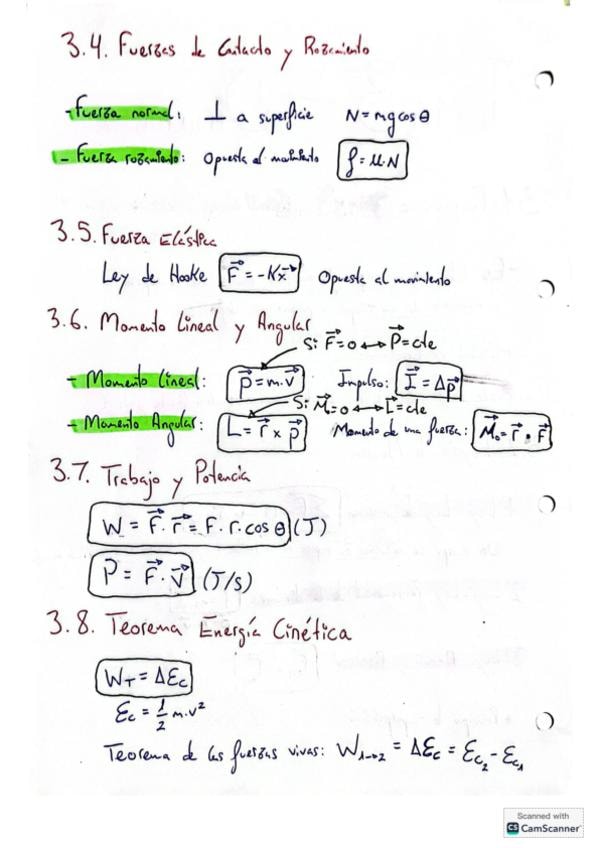 3.4. Fuerzas de Contacto y Rozamiento
- Fuerza normal: ⊥ a superficie N = mg cos θ
- Fuerza rozamiento: Opuesta al movimiento f = μ·N
3.5. Fuerza Elástica
Ley de Hooke F⃗ = -Kx⃗ Opuesta al movimiento
3.6. Momento Lineal y Angular
Si F⃗ = 0 ↔ P⃗ = cte
- Momento Lineal: p⃗ = m·v⃗ Impulso: I⃗ = Δp⃗
Si M⃗₀ = 0 ↔ L⃗ = cte
- Momento Angular: L = r⃗ x p⃗ Momento de una fuerza: M⃗₀ = r⃗ · F⃗
3.7. Trabajo y Potencia
W = F⃗ · r⃗ = F · r · cos θ (J)
P = F⃗ · v⃗ (J/s)
3.8. Teorema Energía Cinética
W_T = ΔEc
Ec = 1/2 m·v²
Teorema de las fuerzas vivas: W₁→₂ = ΔEc = Ec₂ - Ec₁
Scanned with
CS CamScanner